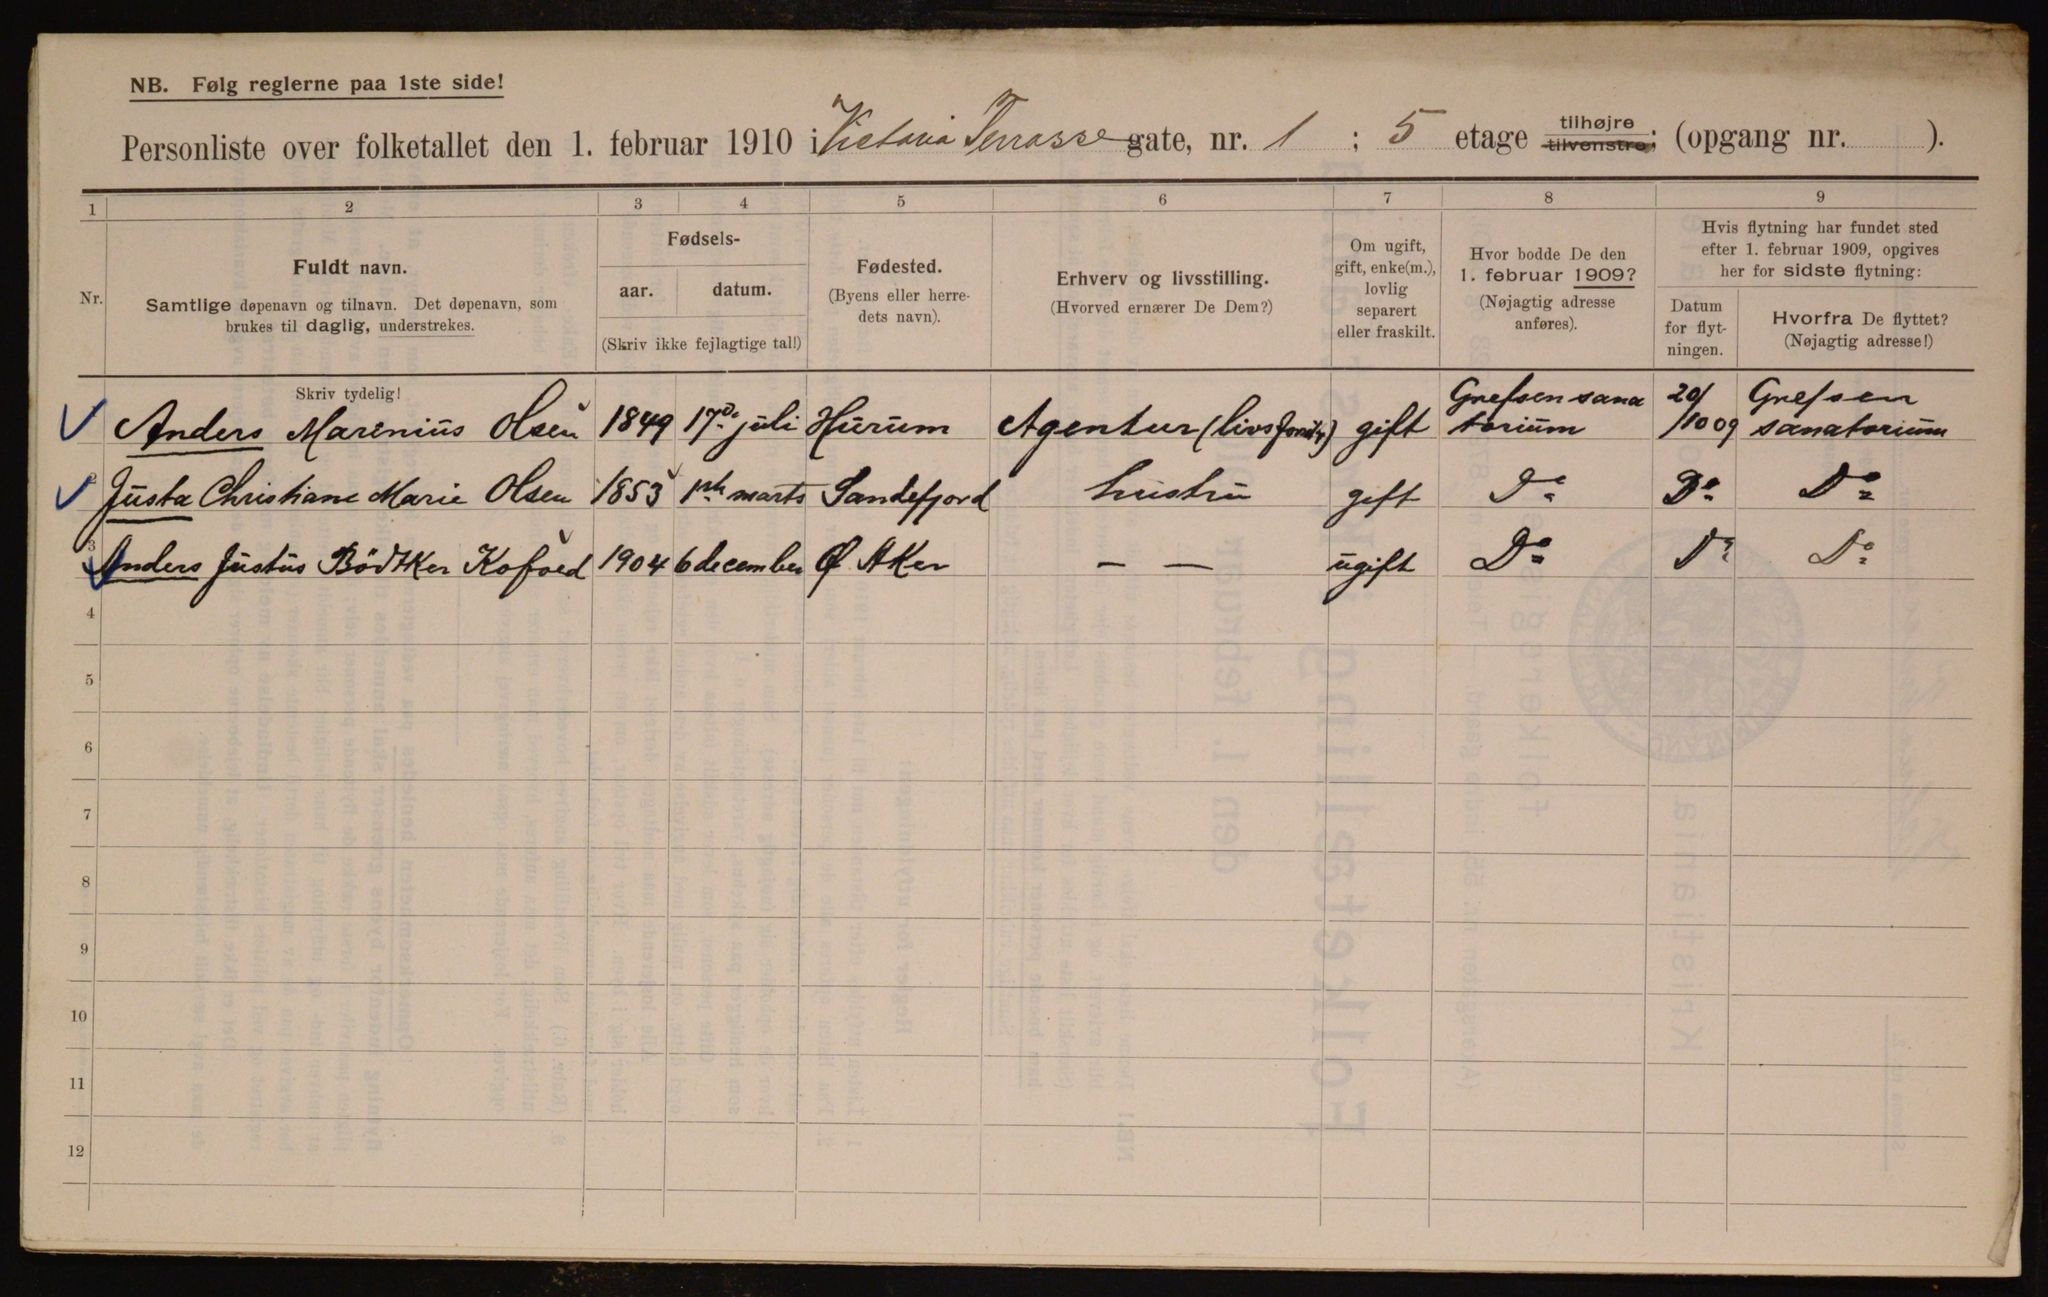 NB. Følg reglerne paa 1ste side!
Personliste over folketallet den 1. februar 1910 i Victoria Terrasse gate, nr. 1 ; 5 etage tilhøjre tilvenstre; (opgang nr. ).
1 2 3 4 5 6 7 8 9
Nr.
Fuldt navn.
Samtlige døpenavn og tilnavn. Det døpenavn, som
brukes til daglig, understrekes.
Skriv tydelig!
Fødsels-
aar. datum.
(Skriv ikke fejlagtige tal!)
Fødested.
(Byens eller herre-
dets navn).
Erhverv og livsstilling.
(Hvorved ernærer De Dem?)
Om ugift,
gift, enke(m.),
lovlig
separert
eller fraskilt.
Hvor bodde De den
1. februar 1909?
(Nøjagtig adresse
anføres).
Hvis flytning har fundet sted
efter 1. februar 1909, opgives
her for sidste flytning:
Datum
for flyt-
ningen.
Hvorfra De flyttet?
(Nøjagtig adresse!)
Anders Marenius Olsen 1849 17de juli Hurum Agentur (livsforsikr) gift Grefsen sana torium 20/10 09 Grefsen sanatorium
2 Justa Christiane Marie Olsen 1853 1ste marts Sandefjord hustru gift Do Do Do
3 Anders Justus Bödtker Kofoed 1904 6 december Ø Aker — — ugift Do Do Do
4
5
6
7
8
9
10
11
12